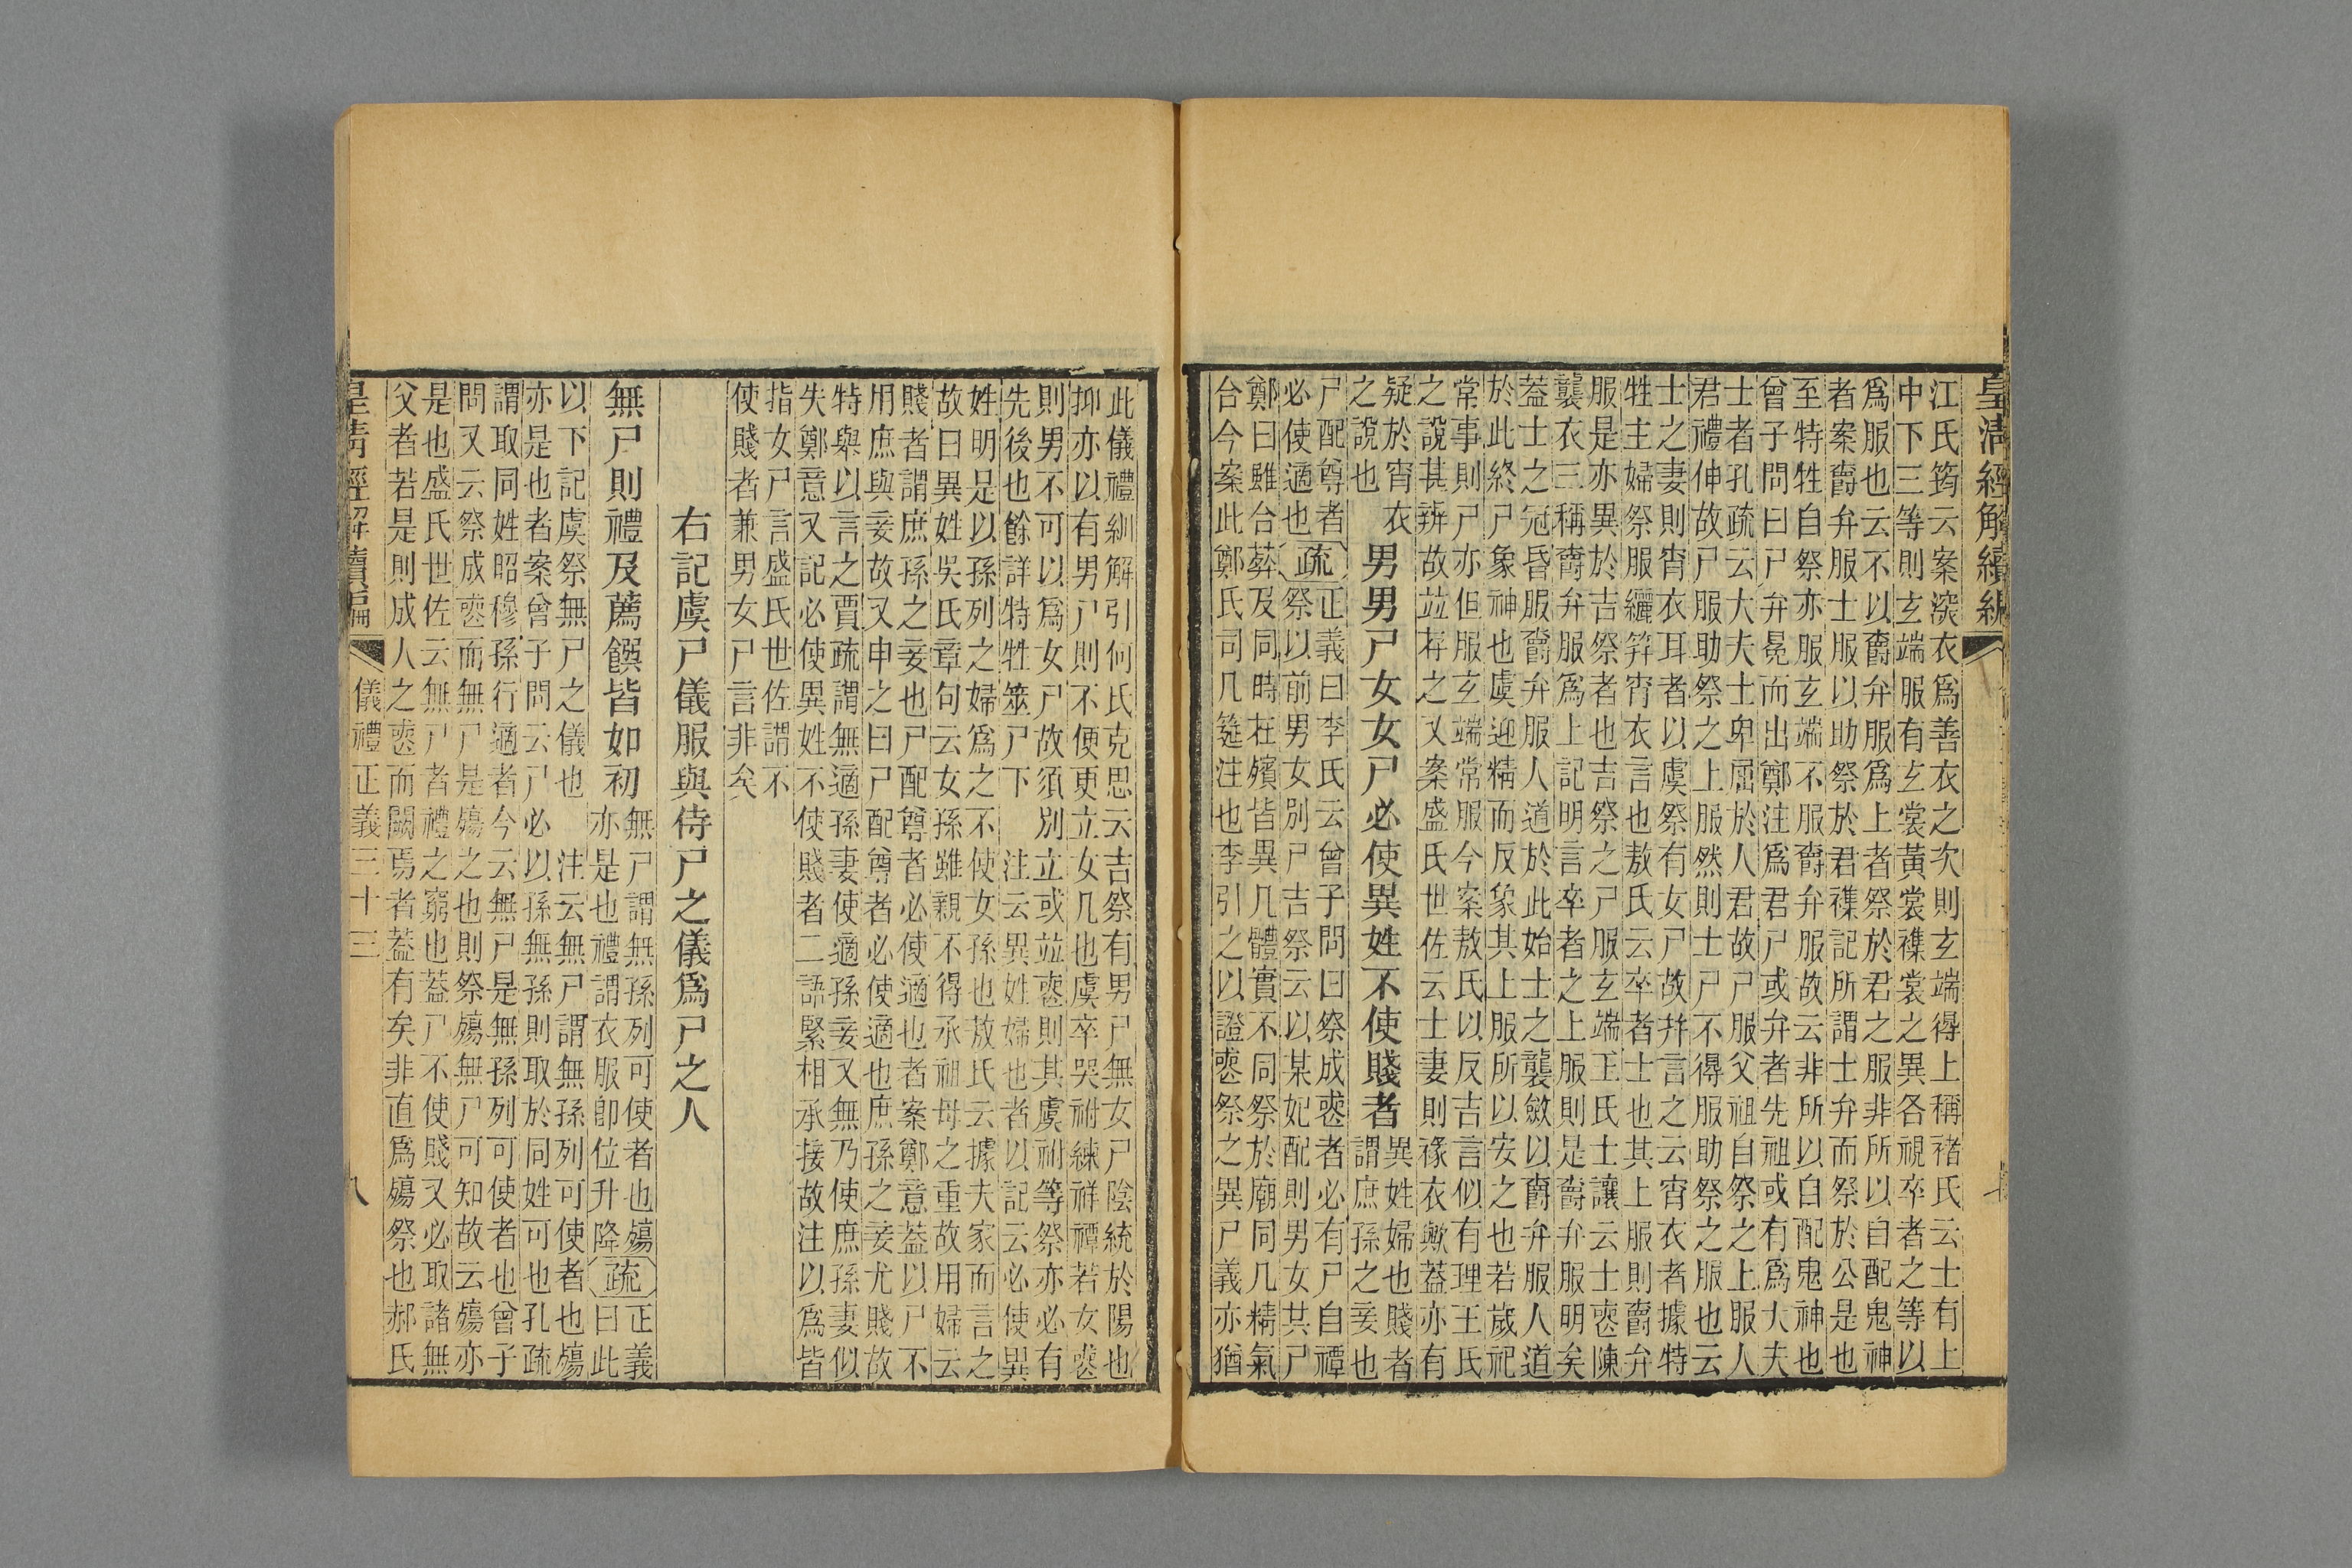 皇清經解續編
江氏筠云案深衣爲善衣之次則玄端得上稱褚氏云士有上
中下三等則玄端服有玄裳黃裳襍裳之異各視卒者之等以
爲服也云不以爵弁服爲上者祭於君之服非所以自配鬼神
者案爵弁服士服以助祭於君襍記所謂士弁而祭於公是也
至特牲自祭亦服玄端不服爵弁服故云非所以自配鬼神也
曾子問曰尸弁冕而出鄭注爲君尸或弁者先祖或有爲大夫
士者孔疏云大夫士卑屈於人君故尸服父祖自祭之上服人
君禮伸故尸服助祭之上服然則士尸不得服助祭之服也云
士之妻則宵衣耳者以虞祭有女尸故幷言之云宵衣者據特
牲主婦祭服纚笄宵衣言也敖氏云卒者士也其上服則爵弁
服是亦異於吉祭者也吉祭之尸服玄端王氏士讓云士喪陳
襲衣三稱爵弁服爲上記明言卒者之上服則是爵弁服明矣
蓋士之冠昏服爵弁服人道於此始士之襲斂以爵弁服人道
於此終尸象神也虞迎精而反象其上服所以安之也若歲祀
常事則尸亦但服玄端常服今案敖氏以反吉言似有理王氏
之說甚辨故竝存之又案盛氏世佐云士妻則褖衣歟蓋亦有
疑於宵衣
之說也
男男尸女女尸必使異姓不使賤者
異姓婦也賤者
謂庶孫之妾也
尸配尊者
必使適也
疏
正義曰李氏云曾子問曰祭成喪者必有尸自禫
祭以前男女別尸吉祭云以某妃配則男女其尸
鄭曰雖合葬及同時在殯皆異几體實不同祭於廟同几精氣
合今案此鄭氏司几筵注也李引之以證喪祭之異尸義亦猶
此儀禮紃解引何氏克思云吉祭有男尸無女尸陰統於陽也
抑亦以有男尸則不便更立女几也虞卒哭祔練祥禫若女喪
則男不可以爲女尸故須別立或竝喪則其虞祔等祭亦必有
先後也餘詳特牲筮尸下
注云異姓婦也者以記云必使異
姓明是以孫列之婦爲之不使女孫也敖氏云據夫家而言之
故曰異姓吳氏章句云女孫雖親不得承祖母之重故用婦云
賤者謂庶孫之妾也尸配尊者必使適也者案鄭意蓋以尸不
用庶與妾故又申之曰尸配尊者必使適也庶孫之妾尤賤故
特舉以言之賈疏謂無適孫妻使適孫妾又無乃使庶孫妻似
失鄭意又記必使異姓不使賤者二語緊相承接故注以爲皆
指女尸言盛氏世佐謂不
使賤者兼男女尸言非矣
右記虞尸儀服與侍尸之儀爲尸之人
無尸則禮及薦饌皆如初
無尸謂無孫列可使者也殤
亦是也禮謂衣服卽位升降
疏
正義
曰此
以下記虞祭無尸之儀也
注云無尸謂無孫列可使者也殤
亦是也者案曾子問云尸必以孫無孫則取於同姓可也孔疏
謂取同姓昭穆孫行適者今云無尸是無孫列可使者也曾子
問又云祭成喪而無尸是殤之也則祭殤無尸可知故云殤亦
是也盛氏世佐云無尸者禮之窮也蓋尸不使賤又必取諸無
父者若是則成人之喪而闕焉者蓋有矣非直爲殤祭也郝氏
皇清經解續編
儀禮正義三十三
八